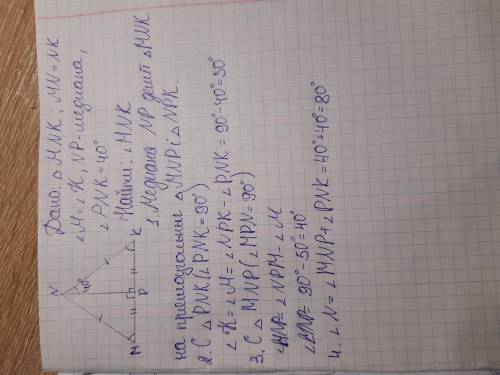 Дано: △ MNK, MN=NK
∠M=∠K, NP-медиана,
∠PNK=40°
Найти: ∠MNK
1. Медиана NP делит △MNK
на прямоугольные △MNP і △NPK.
2. С △ PNK(∠PNK=90°)
∠K=∠M=∠NPK-∠PNK=90°-40°=50°
3. С △ MNP(∠MPN=90°)
∠MNP=∠NPM-∠M
∠MNP=90°-50=40°
4. ∠N=∠MNP+∠PNK=40°+40°=80°
N
40°
M
P
K